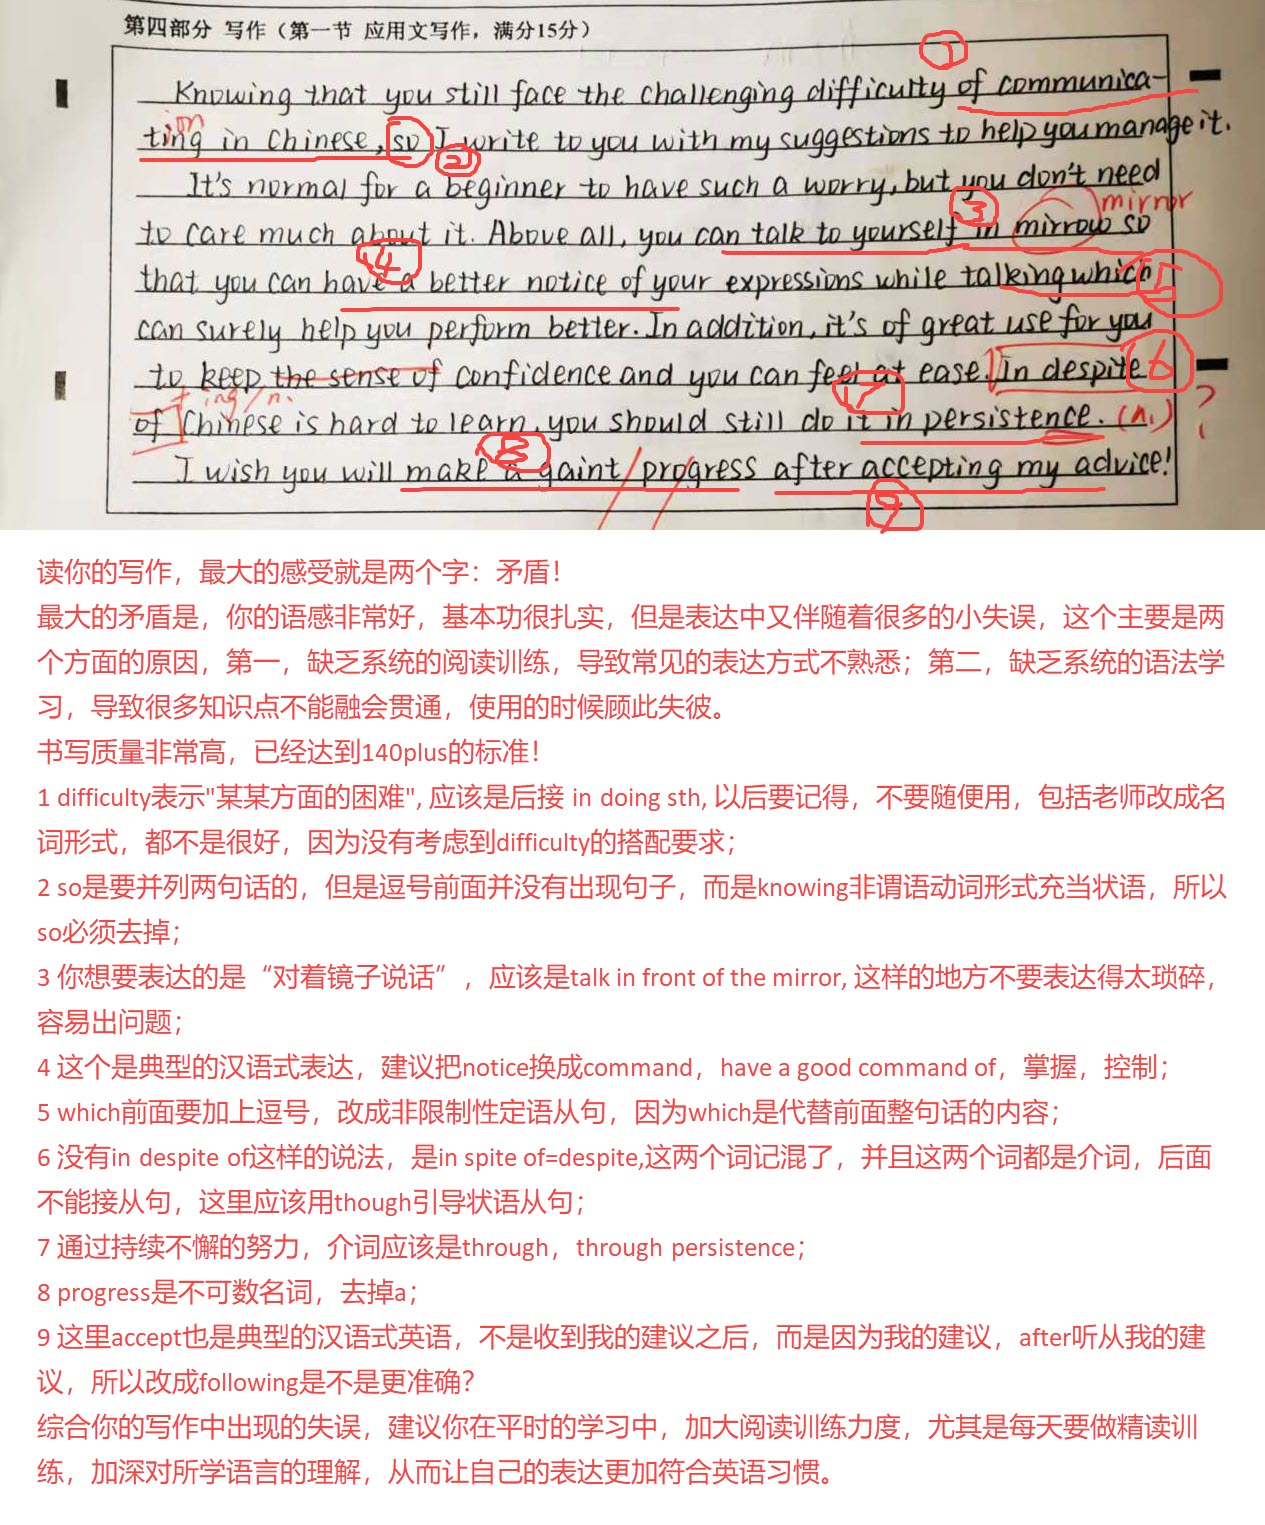 第四部分 写作（第一节 应用文写作，满分15分）
①
Knowing that you still face the challenging difficulty of communica-
ion
ting in Chinese, so I write to you with my suggestions to help you manage it.
②
It's normal for a beginner to have such a worry, but you don't need
③ mirror
to care much about it. Above all, you can talk to yourself in mirrow so
④
that you can have a better notice of your expressions while talking which
5
can surely help you perform better. In addition, it's of great use for you
to keep the sense of confidence and you can feel at ease. In despite
6
+ing/n. 7 ?
of Chinese is hard to learn, you should still do it in persistence. (n.)
8
I wish you will make a gaint progress after accepting my advice!
9
读你的写作，最大的感受就是两个字：矛盾！
最大的矛盾是，你的语感非常好，基本功很扎实，但是表达中又伴随着很多的小失误，这个主要是两
个方面的原因，第一，缺乏系统的阅读训练，导致常见的表达方式不熟悉；第二，缺乏系统的语法学
习，导致很多知识点不能融会贯通，使用的时候顾此失彼。
书写质量非常高，已经达到140plus的标准！
1 difficulty表示"某某方面的困难", 应该是后接 in doing sth, 以后要记得，不要随便用，包括老师改成名
词形式，都不是很好，因为没有考虑到difficulty的搭配要求；
2 so是要并列两句话的，但是逗号前面并没有出现句子，而是knowing非谓语动词形式充当状语，所以
so必须去掉；
3 你想要表达的是“对着镜子说话”，应该是talk in front of the mirror, 这样的地方不要表达得太琐碎，
容易出问题；
4 这个是典型的汉语式表达，建议把notice换成command，have a good command of，掌握，控制；
5 which前面要加上逗号，改成非限制性定语从句，因为which是代替前面整句话的内容；
6 没有in despite of这样的说法，是in spite of=despite,这两个词记混了，并且这两个词都是介词，后面
不能接从句，这里应该用though引导状语从句；
7 通过持续不懈的努力，介词应该是through，through persistence；
8 progress是不可数名词，去掉a；
9 这里accept也是典型的汉语式英语，不是收到我的建议之后，而是因为我的建议，after听从我的建
议，所以改成following是不是更准确？
综合你的写作中出现的失误，建议你在平时的学习中，加大阅读训练力度，尤其是每天要做精读训
练，加深对所学语言的理解，从而让自己的表达更加符合英语习惯。